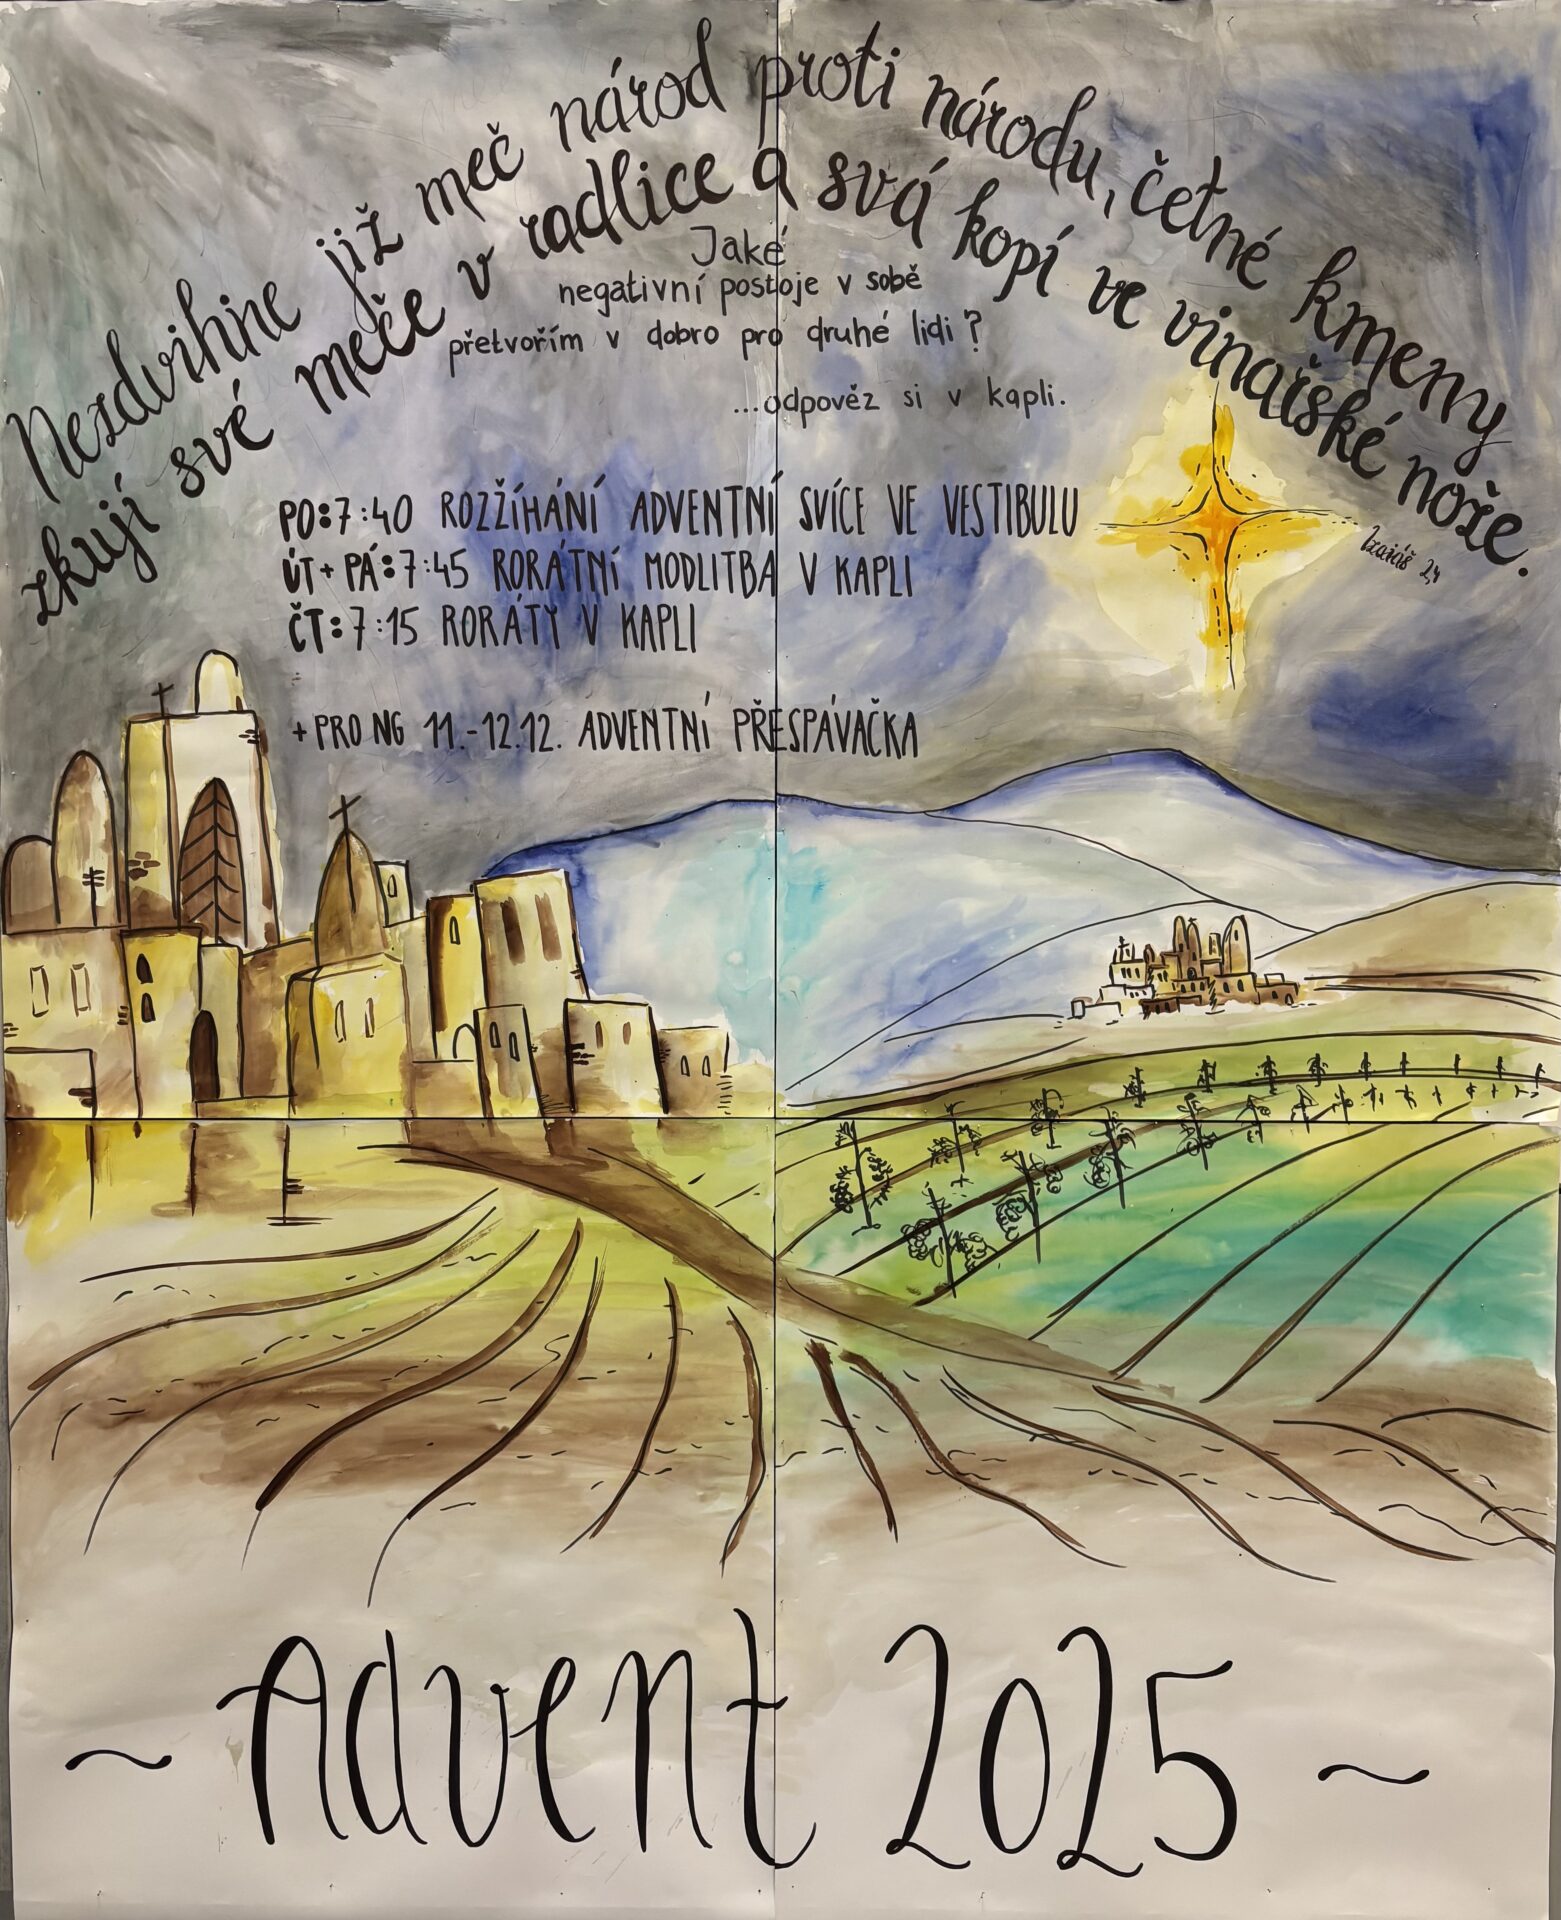 Nezdvihne již meč národ proti národu, četné kmeny
zkují své meče v radlice a svá kopí ve vinařské nože.
Izaiáš 2,4
Jaké
negativní postoje v sobě
přetvořím v dobro pro druhé lidi?
...odpověz si v kapli.
PO:7:40 ROZŽÍHÁNÍ ADVENTNÍ SVÍCE VE VESTIBULU
ÚT+PÁ:7:45 RORÁTNÍ MODLITBA V KAPLI
ČT:7:15 RORÁTY V KAPLI
+PRO NG 11.-12.12. ADVENTNÍ PŘESPÁVAČKA
~Advent 2025~